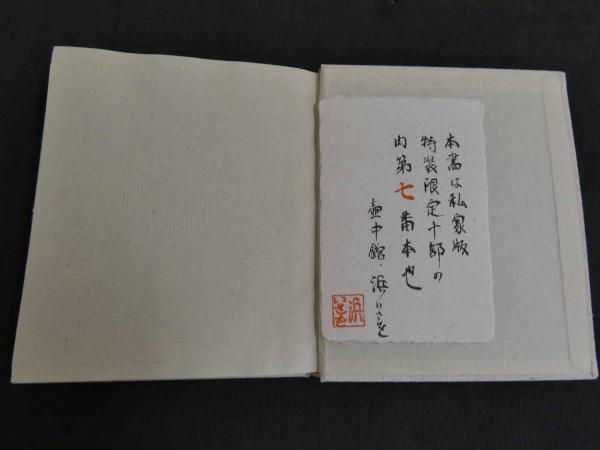 本書は私家版
特装限定十部の
内第七番本也
壷中館・浜いさを
浜いさを